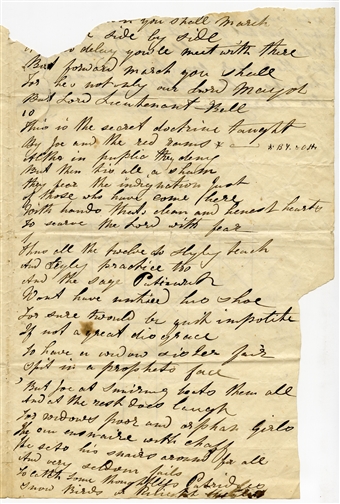 you shall march
side by side
delay you'le meet with there
But forward march you shall
For he's not only our Lord Mayor
But Lord Lieutenant Bell
10
This is the secret doctrine taught
By Joe and the red rams
Altho in public they deny
But then tis all a sham
They fear the indignation just
of those who have come here
With hands thats clean and honest hearts
To searve the Lord with fear
Thus all the twelve do slyly teach
And slyly practice too
And the sage Patriarch
Wont have untied his shoe
For sure would be quite impolite
If not a great disgrace
To have a widow sister fair
Spit in a prophets face
But Joe at snaring beats them all
And at the rest does laugh
For widows poor and orphan girls
He can ensnare with chaff
He sets his snares around for all
And very seldom fails
To catch some thoughtless Patridge
Snow Birds